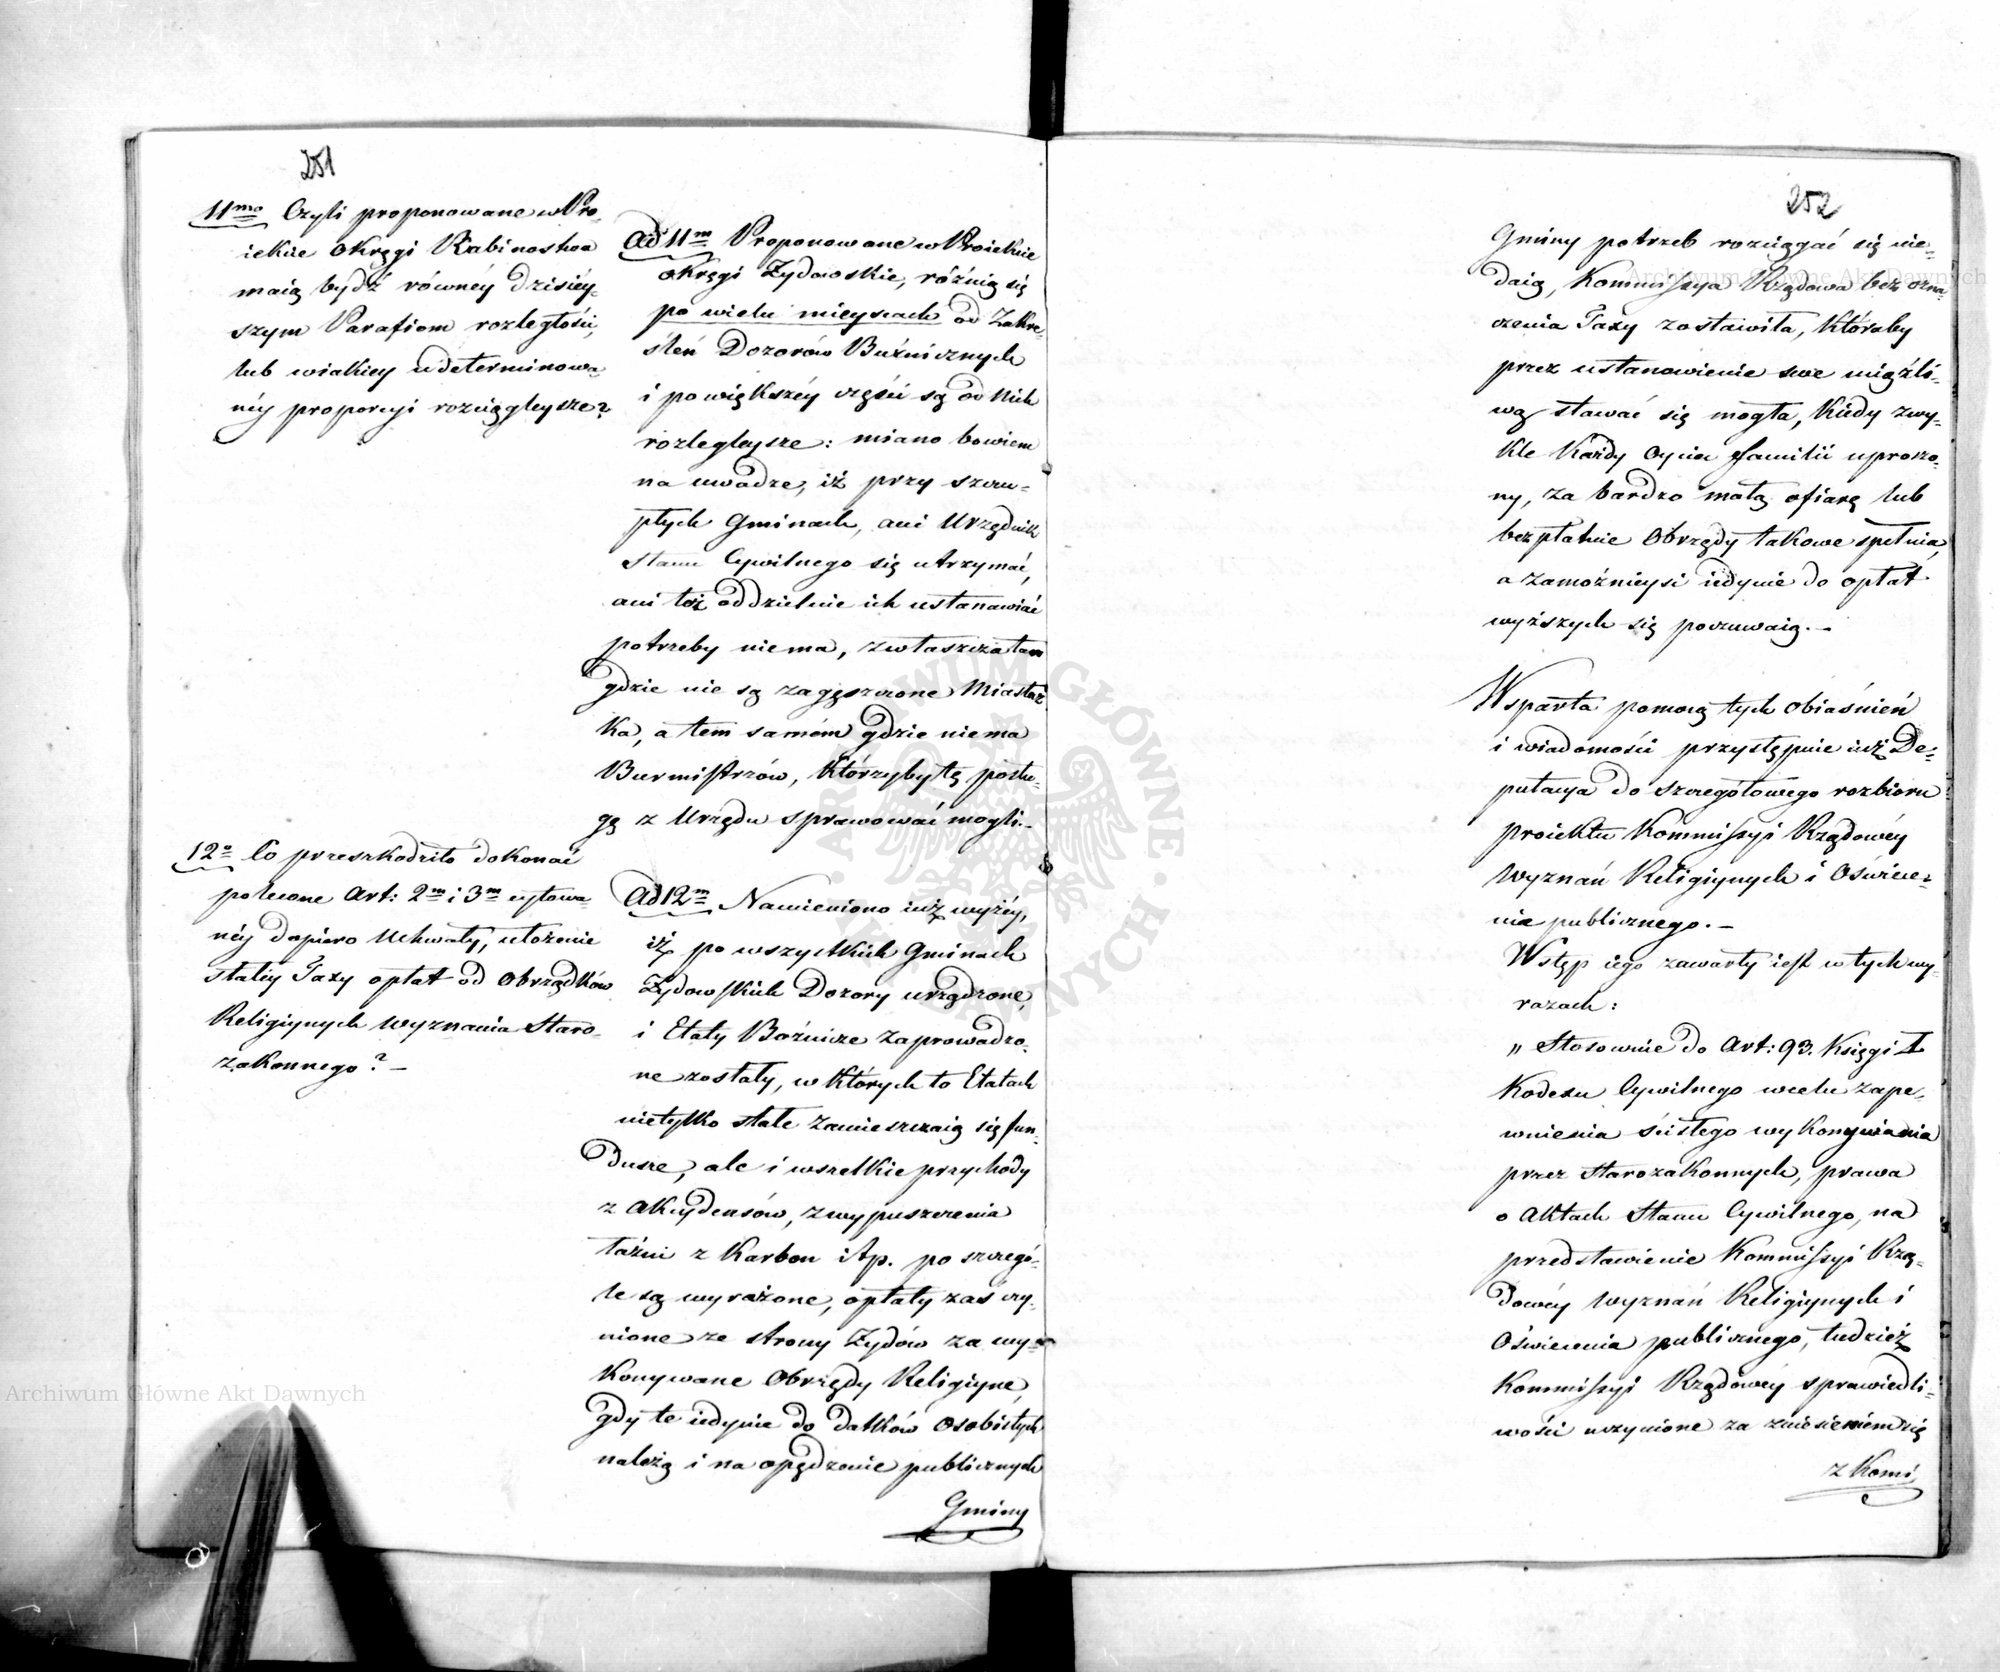 251
11mo Czyli proponowane w Pro-
iekcie Okręgi Rabinostwa
maią bydź równéy dzisiéy-
szym Parafiom rozległości,
lub wiakiey udeterminowa-
néy proporcyi rozciągleysze?
12o Co przeszkodziło dokonać
polecone Art: 2m i 3m cytowa-
néy dopiero Uchwały, ułożenie
stałéy Taxy opłat od Obrządków
Religiynych Wyznania Staro-
zakonnego? –
Ad 11m Proponowane w Proiekcie
Okręgi Żydowskie, różnią się
po wielu mieyscach od Zakre-
śleń Dozorów Bużnicznych
i powiększéy części są od nich
rozlegleysze: miano bowiem
na uwadze, iż przy szczu-
płych Gminach, ani Urzędnik
Stanu Cywilnego się utrzymać,
ani też oddzielnie ich ustanawiać
potrzeby niema, zwłaszcza tam
gdzie nie są zagęszczone Miastecz
ka, a tem samém gdzie niema
Burmistrzów, którzyby tę posłu-
gę z Urzędu sprawować mogli. –
Ad 12m Namieniono iuż wyżéy,
iż po wszystkich Gminach
Żydowskich Dozory urządzone,
i Etaty Bożnicze zaprowadzo-
ne zostały, w których to Etatach
nietylko stałe zamieszczaią się fun-
dusze, ale i wszelkie przychody
z Akcydensów, z wypuszczenia
łaźni z Karbon itp. po szczegó-
le są wyrażone, opłaty zaś czy-
nione ze strony Żydów za wy-
konywane Obrzędy Religiyne,
gdy te iedynie do datków osobistych
należą i na opędzenie publicznych
Gminy
252
Gminy potrzeb rozciągać się nie-
daią, Kommissya Rządowa bez ozna-
czenia Taxy zostawiła, któraby
przez ustanowienie swe uciążli-
wą stawać się mogła, kiedy zwy-
kle każdy Oyciec familii uproszo-
ny, za bardzo małą ofiarę lub
bezpłatnie Obrzędy takowe spełnia,
a zamożnieysi iedynie do opłat
wyższych się poczuwaią. –
Wsparta pomocą tych obiaśnień
i wiadomości przystępuie iuż De-
putacya do szczegółowego rozbioru
proiektu Kommissyi Rządowéy
Wyznań Religiynych i Oświece-
nia publicznego. –
Wstęp iego zawarty iest w tych wy-
razach:
„ Stosownie do Art: 93. Księgi I
Kodexu Cywilnego wcelu zape-
wnienia ścisłego wykonywania
przez Starozakonnych, prawa
o Aktach Stanu Cywilnego, na
przedstawienie Kommissyi Rzą-
dowéy Wyznań Religiynych i
Oświecenia publicznego, tudzież
Kommissyi Rządowéy sprawiedli-
wości uczynione za zniesieniem się
z Komi
Archiwum Główne Akt Dawnych
Archiwum Główne Akt Dawnych
ARCHIWUM GŁÓWNE AKT DAWNYCH